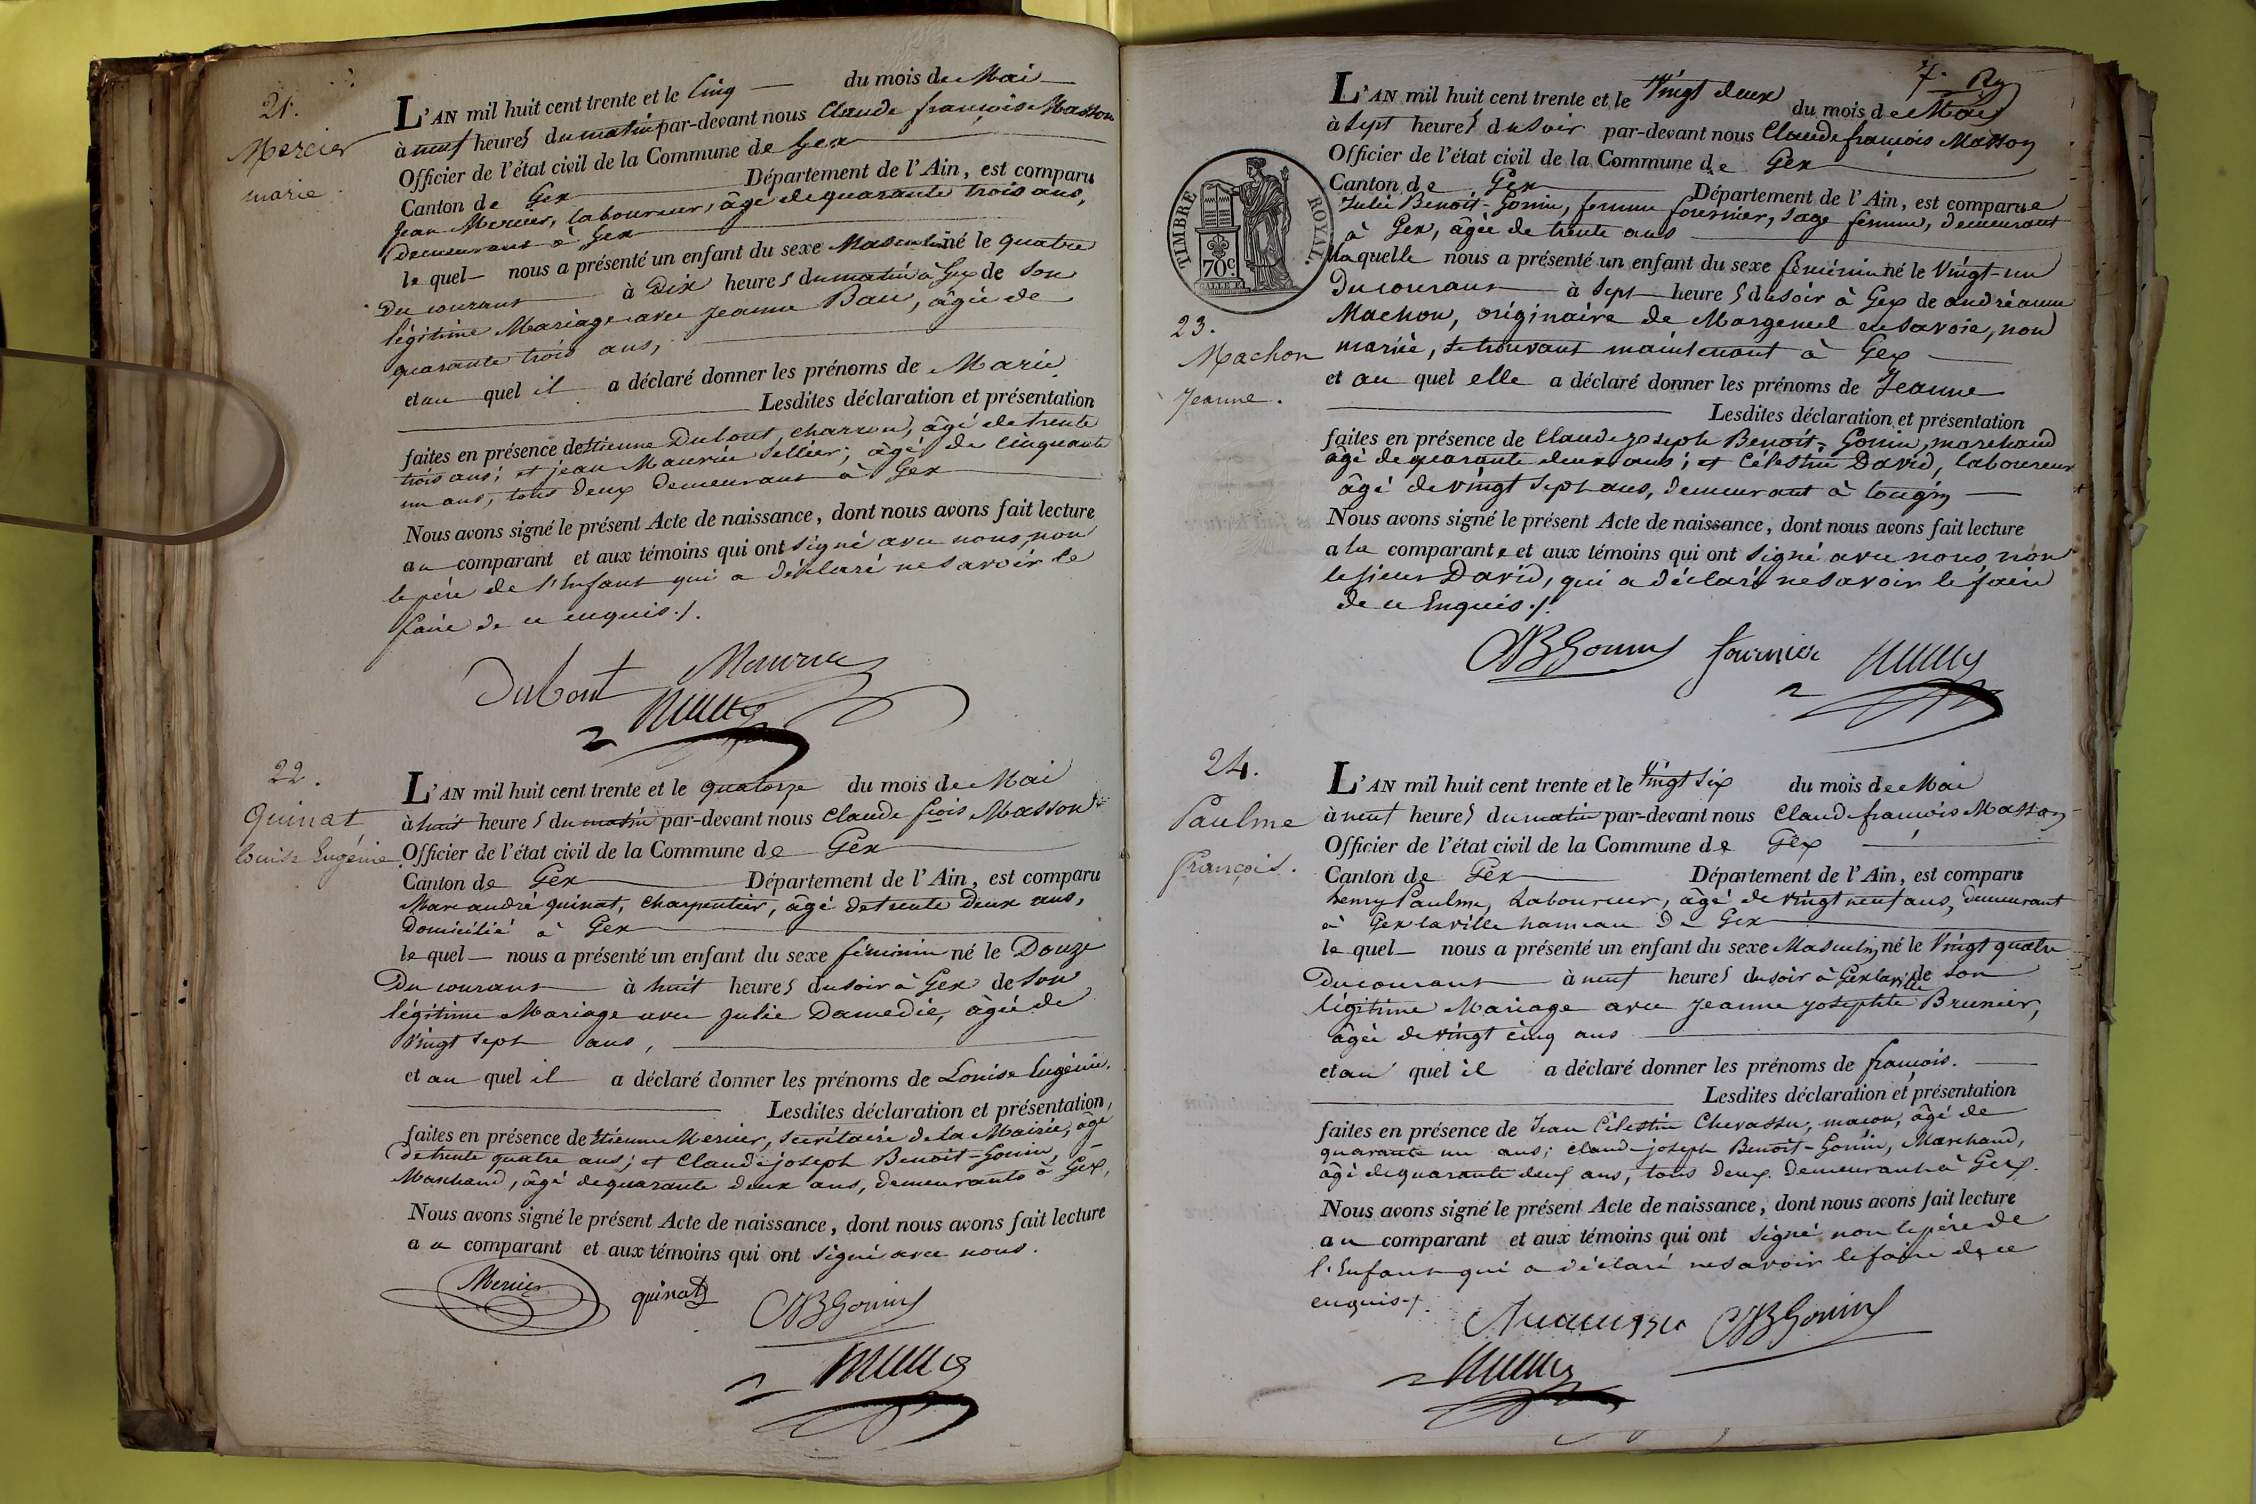 21.
Mercier
marie
L'AN mil huit cent trente et le Cinq du mois de Mai
à neuf heures du matin par-devant nous Claude françois Masson
Officier de l'état civil de la Commune de Gex
Canton de Gex Département de l'Ain, est comparu
Jean Mercier, laboureur, âgé de quarante trois ans,
demeurant à Gex
le quel nous a présenté un enfant du sexe Masculin né le quatre
Du courant à Dix heures du matin à Gex de son
légitime Mariage avec Jeanne Bau, âgée de
quarante trois ans,
et au quel il a déclaré donner les prénoms de Marie
Lesdites déclaration et présentation
faites en présence de Etienne Dubout, charron, âgé de trente
trois ans; et jean Maurice sellier, âgé de Cinquante
un ans, tous deux demeurant à Gex
Nous avons signé le présent Acte de naissance, dont nous avons fait lecture
au comparant et aux témoins qui ont signé avec nous, non
le père de l'Enfant qui a déclaré ne savoir le
faire de ce enquis./.
Dubout Maurice
22.
Quinat
Louise Eugénie
L'AN mil huit cent trente et le quatorze du mois de Mai
à huit heures du matin par-devant nous Claude fcois Masson
Officier de l'état civil de la Commune de Gex
Canton de Gex Département de l'Ain, est comparu
Marc andré quinat, Charpentier, âgé de trente Deux ans,
Domicilié à Gex
le quel nous a présenté un enfant du sexe féminin né le Douze
Du courant à huit heures du soir à Gex de son
légitime Mariage avec Julie Damedie, âgée de
Vingt sept ans,
et au quel il a déclaré donner les prénoms de Louise Eugénie.
Lesdites déclaration et présentation,
faites en présence de Etienne Mercier, secrétaire de la Mairie, âgé
De trente quatre ans; et Claude joseph Benoit-Gonin,
Marchand, âgé de quarante deux ans, demeurants à Gex.
Nous avons signé le présent Acte de naissance, dont nous avons fait lecture
au comparant et aux témoins qui ont signé avec nous.
Mercier quinat CJBGonin
7.
TIMBRE ROYAL.
70c.
23.
Machon
Jeanne.
L'AN mil huit cent trente et le Vingt deux du mois de Mai
à Sept heures du soir par-devant nous Claude françois Masson
Officier de l'état civil de la Commune de Gex
Canton de Gex Département de l'Ain, est comparue
Julie Benoit-Gonin, femme fournier, sage femme, demeurant
à Gex, âgée de trente ans
la quelle nous a présenté un enfant du sexe féminin né le Vingt-un
Du courant à Sept heures du soir à Gex de andréanne
Machon, originaire de en savoie, non
mariée, se trouvant maintenant à Gex
et au quel elle a déclaré donner les prénoms de Jeanne
Lesdites déclaration et présentation
faites en présence de Claude joseph Benoit-Gonin, marchand
âgé de quarante deux ans; et Célestin David, laboureur
âgé de vingt sept ans, demeurant à
Nous avons signé le présent Acte de naissance, dont nous avons fait lecture
a la comparante et aux témoins qui ont signé avec nous, non
le sieur David, qui a déclaré ne savoir le faire
de ce Enquis./.
CJBGonin fournier
24.
Paulme
François.
L'AN mil huit cent trente et le Vingt Six du mois de Mai
à neuf heures du matin par-devant nous Claude françois Masson
Officier de l'état civil de la Commune de Gex
Canton de Gex Département de l'Ain, est comparu
henry Paulme, Laboureur, âgé de vingt neuf ans, demeurant
à Gex la ville hameau De Gex
le quel nous a présenté un enfant du sexe Masculin né le Vingt quatre
Du courant à neuf heures du soir à Gex la ville de son
légitime Mariage avec Jeanne josephte Brunier,
âgée de vingt cinq ans
et au quel il a déclaré donner les prénoms de françois.
Lesdites déclaration et présentation
faites en présence de Jean Célestin Chevassu, maçon, âgé de
quarante un ans; Claude joseph Benoit-Gonin, Marchand,
âgé de quarante deux ans, tous deux Demeurant à Gex.
Nous avons signé le présent Acte de naissance, dont nous avons fait lecture
au comparant et aux témoins qui ont signé non le père de
l'Enfant qui a déclaré ne savoir le faire de ce
enquis./.
CJBGonin